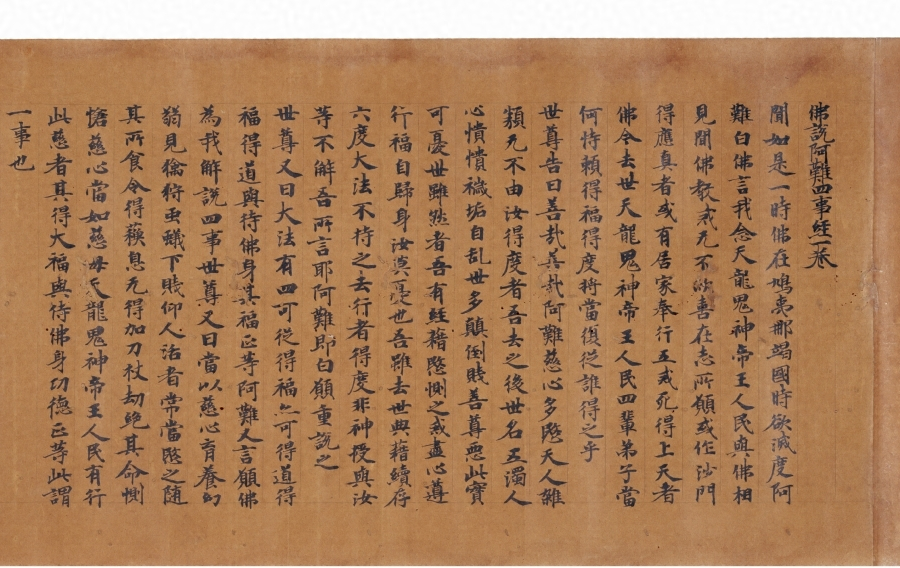 佛說阿難四事經一卷
聞如是一時佛在鳩夷那竭國時欲滅度阿
難白佛言我念天龍鬼神帝王人民與佛相
見聞佛教戒无不欲善在志所願或作沙門
得應真者或有居家奉行五戒死得上天者
佛今去世天龍鬼神帝王人民四輩弟子當
何恃賴得福得度將當復從誰得之乎
世尊告曰善哉善哉阿難慈心多愍天人雜
類无不由汝得度者吾去之後世名五濁人
心憒憒穢垢自亂世多顛倒賤善尊惡此實
可憂世雖然者吾有經籍愍惻之戒盡心遵
行福自歸身汝莫憂也吾雖去世典籍續存
六度大法不持之去行者得度非神授與汝
等不解吾所言耶阿難即白願重說之
世尊又曰大法有四可從得福亦可得道得
福得道與待佛身其福正等阿難又言願佛
為我解說四事世尊又曰當以慈心育養幼
弱見禽狩虫蟻下賤仰人活者常當愍之隨
其所食令得穌息无得加刀杖劫絕其命惻
愴慈心當如慈母天龍鬼神帝王人民有行
此慈者其得大福與待佛身功德正等此謂
一事也